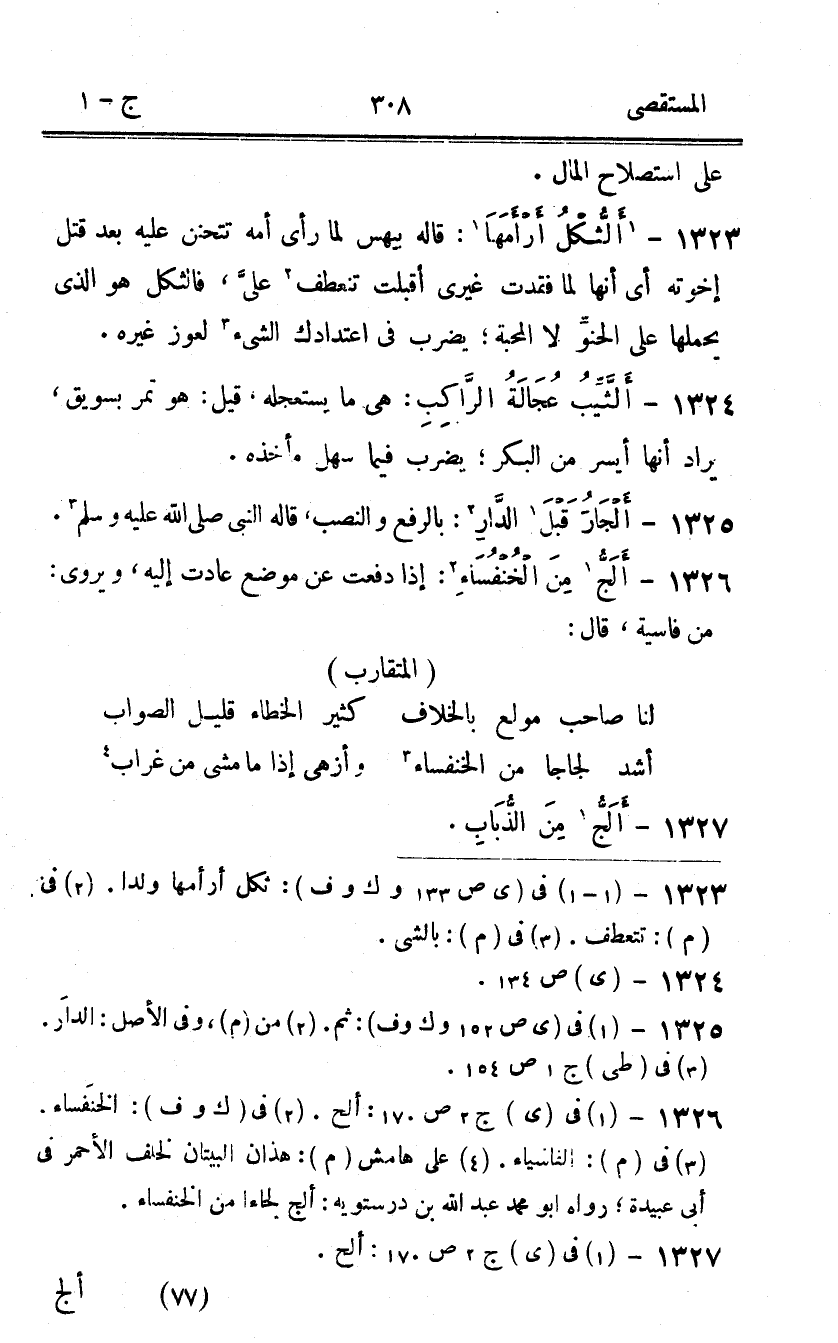 المستقصى ٣٠٨ ج - ١
على استصلاح المال .
١٣٢٣ - ١أَلثُّكْلُ أَرْأَمَهَا١ : قاله بيهس لما رأى أمه تتحنن عليه بعد قتل
إخوته أى أنها لما فقدت غيرى أقبلت تنعطف٢ علىَّ ، فالثكل هو الذى
يحملها على الحنوِّ لا المحبة ؛ يضرب فى اعتدادك الشىء٣ لعوز غيره .
١٣٢٤ - أَلثَّيِّبُ عُجَالَةُ الرَّاكِبِ : هى ما يستعجله ، قيل : هو تمر بسويق ،
يراد أنها أيسر من البكر ؛ يضرب فيما سهل مأخذه .
١٣٢٥ - أَلْجَارُ قَبْلَ١ الدَّارِ٢ : بالرفع و النصب ، قاله النبى صلى الله عليه و سلم٣ .
١٣٢٦ - أَلَجُّ١ مِنَ الْخُنْفُسَاءِ٢ : إذا دفعت عن موضع عادت إليه ، و يروى :
من فاسية ، قال :
( المتقارب )
لنا صاحب مولع بالخلاف كثير الخطاء قليل الصواب
أشد لجاجا من الخنفساء٣ و أزهى إذا ما مشى من غراب٤
١٣٢٧ - أَلَجُّ١ مِنَ الذُّبَابِ .
١٣٢٣ - (١-١) فى ( ى ص ١٣٣ و ك و ف ) : ثكل أرأمها ولدا . (٢) فى
( م ) : تتعطف . (٣) فى ( م ) : بالشى .
١٣٢٤ - ( ى ) ص ١٣٤ .
١٣٢٥ - (١) فى ( ى ص ١٥٢ و ك وف ) : ثم . (٢) من (م) ، وفى الأصل : الدارَ .
(٣) فى ( طى ) ج ١ ص ١٥٤ .
١٣٢٦ - (١) فى ( ى ) ج ٢ ص ١٧٠ : ألح . (٢) فى ( ك و ف ) : الخنفَساء .
(٣) فى ( م ) : الفاسياء . (٤) على هامش ( م ) : هذان البيتان لخلف الأحمر فى
أبى عبيدة ؛ رواه ابو محمد عبد الله بن درستويه : ألج لجاجا من الخنفساء .
١٣٢٧ - (١) فى ( ى ) ج ٢ ص ١٧٠ : ألح .
(٧٧) ألج